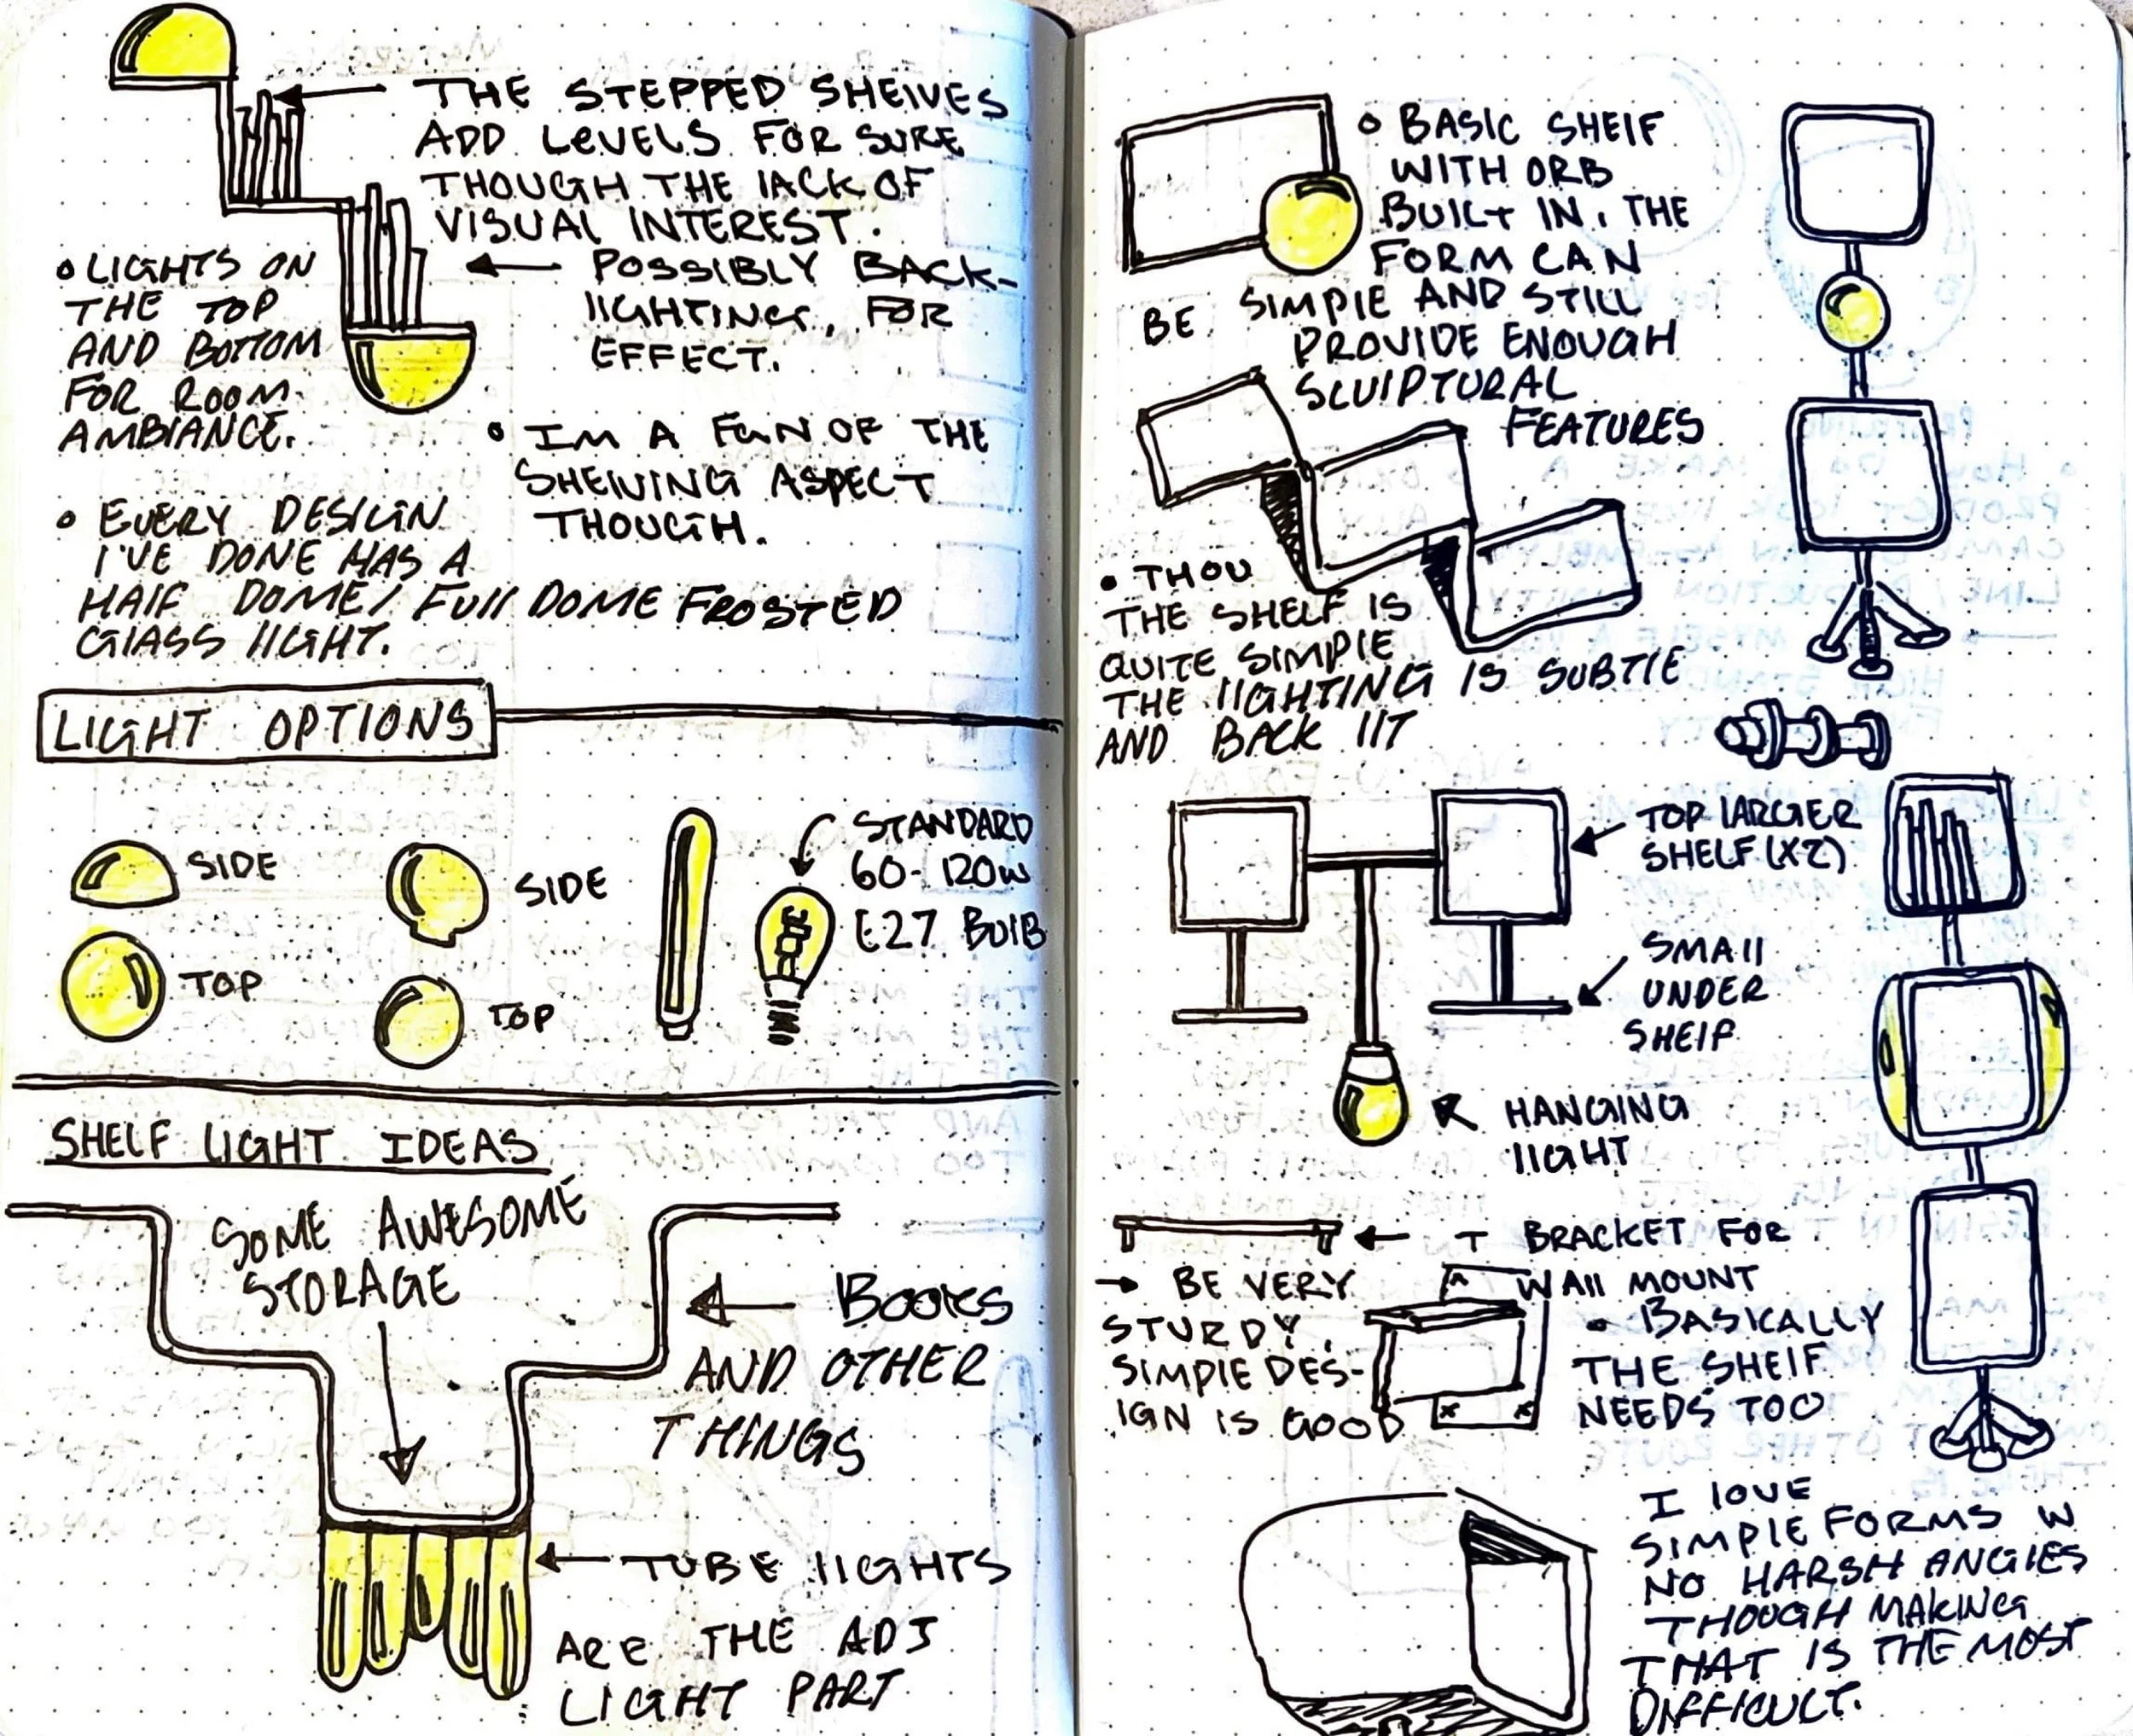 THE STEPPED SHELVES
ADD LEVELS FOR SURE
THOUGH THE LACK OF
VISUAL INTEREST.
• LIGHTS ON
THE TOP
AND BOTTOM
FOR ROOM
AMBIANCE.
POSSIBLY BACK-
LIGHTING, FOR
EFFECT.
• IM A FAN OF THE
SHELVING ASPECT
THOUGH.
• EVERY DESIGN
I'VE DONE HAS A
HALF DOME/ FULL DOME FROSTED
GLASS LIGHT.
LIGHT OPTIONS
SIDE
TOP
SIDE
TOP
STANDARD
60-120W
E27 BULB
SHELF LIGHT IDEAS
SOME AWESOME
STORAGE
BOOKS
AND OTHER
THINGS
TUBE LIGHTS
ARE THE ADJ
LIGHT PART
• BASIC SHELF
WITH ORB
BUILT IN. THE
FORM CAN
BE SIMPLE AND STILL
PROVIDE ENOUGH
SCULPTURAL
FEATURES
• THOU
THE SHELF IS
QUITE SIMPLE
THE LIGHTING IS SUBTLE
AND BACK LIT
TOP LARGER
SHELF (X2)
SMALL
UNDER
SHELF
HANGING
LIGHT
T BRACKET FOR
WALL MOUNT
→ BE VERY
STURDY,
SIMPLE DES-
IGN IS GOOD
• BASICALLY
THE SHELF
NEEDS TOO
I LOVE
SIMPLE FORMS W
NO HARSH ANGLES
THOUGH MAKING
THAT IS THE MOST
DIFFICULT.